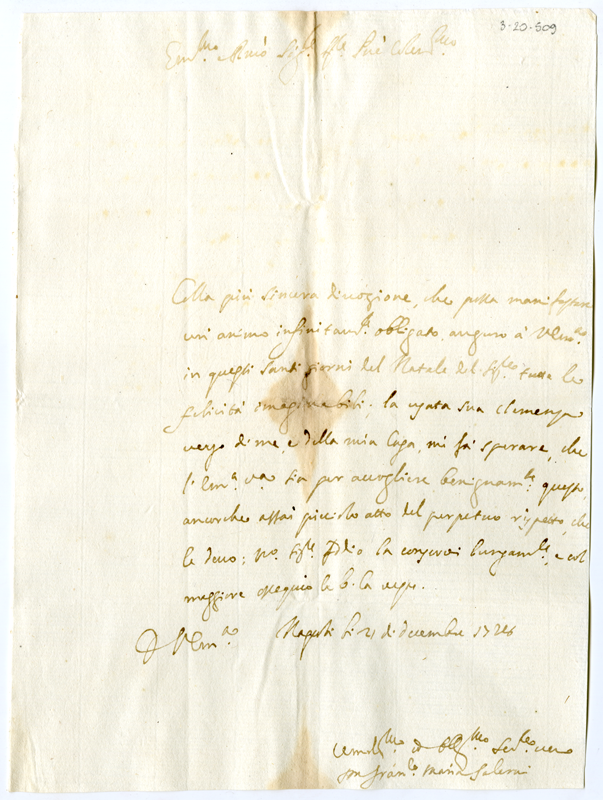 3-20-509
Em.mo Rmo Sig.r
Colla più sincera divozione, che possa manifestare
un animo infinitam.te obbligato, auguro à V. Em.a
in questi Santi giorni del Natale del Sig.re tutte le
felicità imaginabili; la usata sua clemenza
verso di me, e della mia Casa, mi fà sperare, che
l'Em.a V.ra sia per accogliere benignam.te questo
ancorche assai picciolo atto del perpetuo rispetto, che
le devo; Sig.re Iddio la conservi lungam.te, e col
maggiore ossequio le b. la
D V. Em.a Napoli li 21 di decembre 1726
Umiliss.mo ed Obblig.mo Ser.re vero
Fran.co Maria Salerni